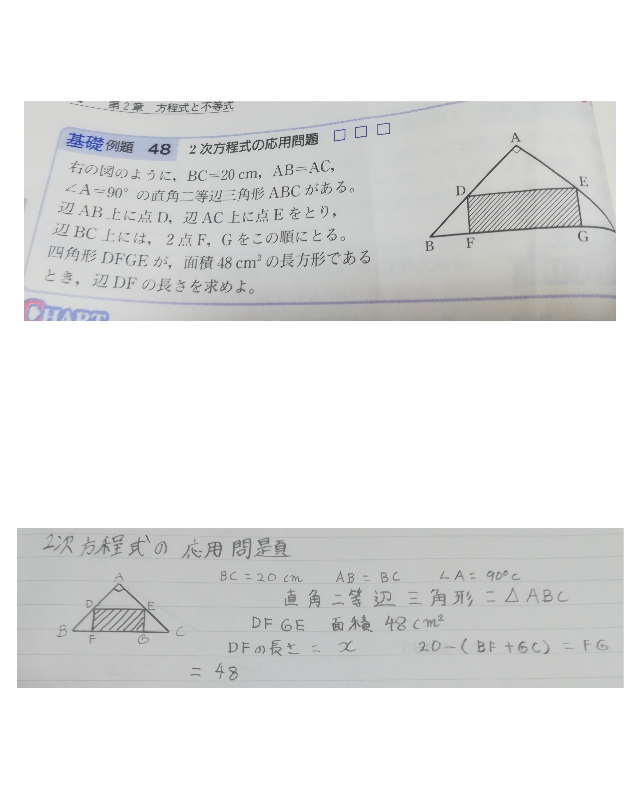 第2章 方程式と不等式
基礎例題 48 2次方程式の応用問題 □□□
右の図のように，BC=20 cm，AB=AC，
∠A=90° の直角二等辺三角形 ABC がある。
辺 AB 上に点 D，辺 AC 上に点 E をとり，
辺 BC 上には，2点 F，G をこの順にとる。
四角形 DFGE が，面積 48 cm² の長方形である
とき，辺 DF の長さを求めよ。
A
D
E
B
F
G
CHART
2次方程式の 応用問題
A
D
E
B
F
G
C
BC = 20 cm AB = BC ∠A = 90°C
直角二等辺三角形 = △ABC
DFGE 面積 48 cm²
DFの長さ = x 20-(BF+GC) = FG
= 48